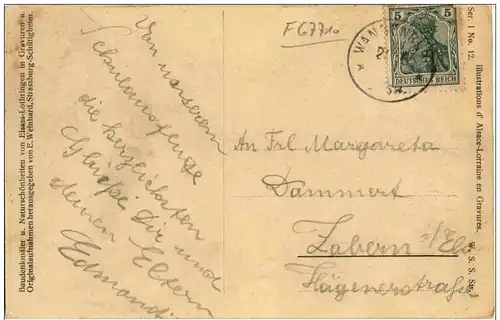 Baudenkmäler u. Naturschönheiten von Elsass-Lothringen in Gravuren u.
Originalaufnahmen herausgegeben von E. Weinhard, Strassburg-Schiltigheim.
Von unserem
Schulausfluge
die herzlichsten
Grüße Dir und
deinen Eltern
Edmond.
F6771a
WAN
5 5
DEUTSCHES REICH
An Frl Margareta
Dammert
Zabern i/Els
Hägenerstraße
Ser. I No. 12. Illustrations d' Alsace-Lorraine en Gravures. W. S. S. Str.